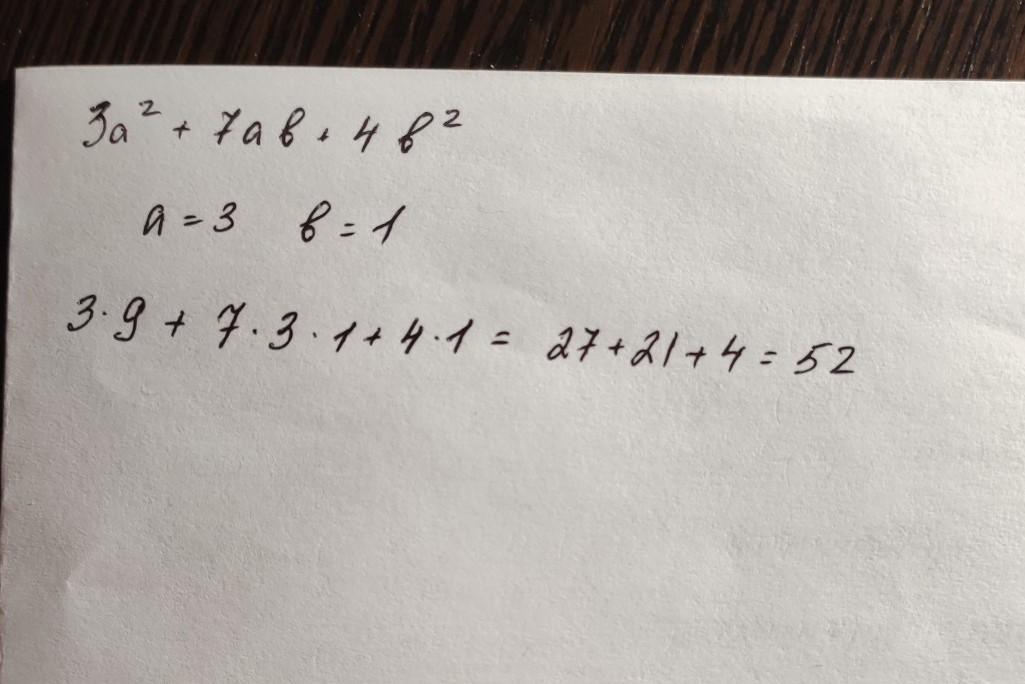 3a² + 7ab + 4b²
a = 3 b = 1
3·9 + 7·3·1 + 4·1 = 27+21+4 = 52